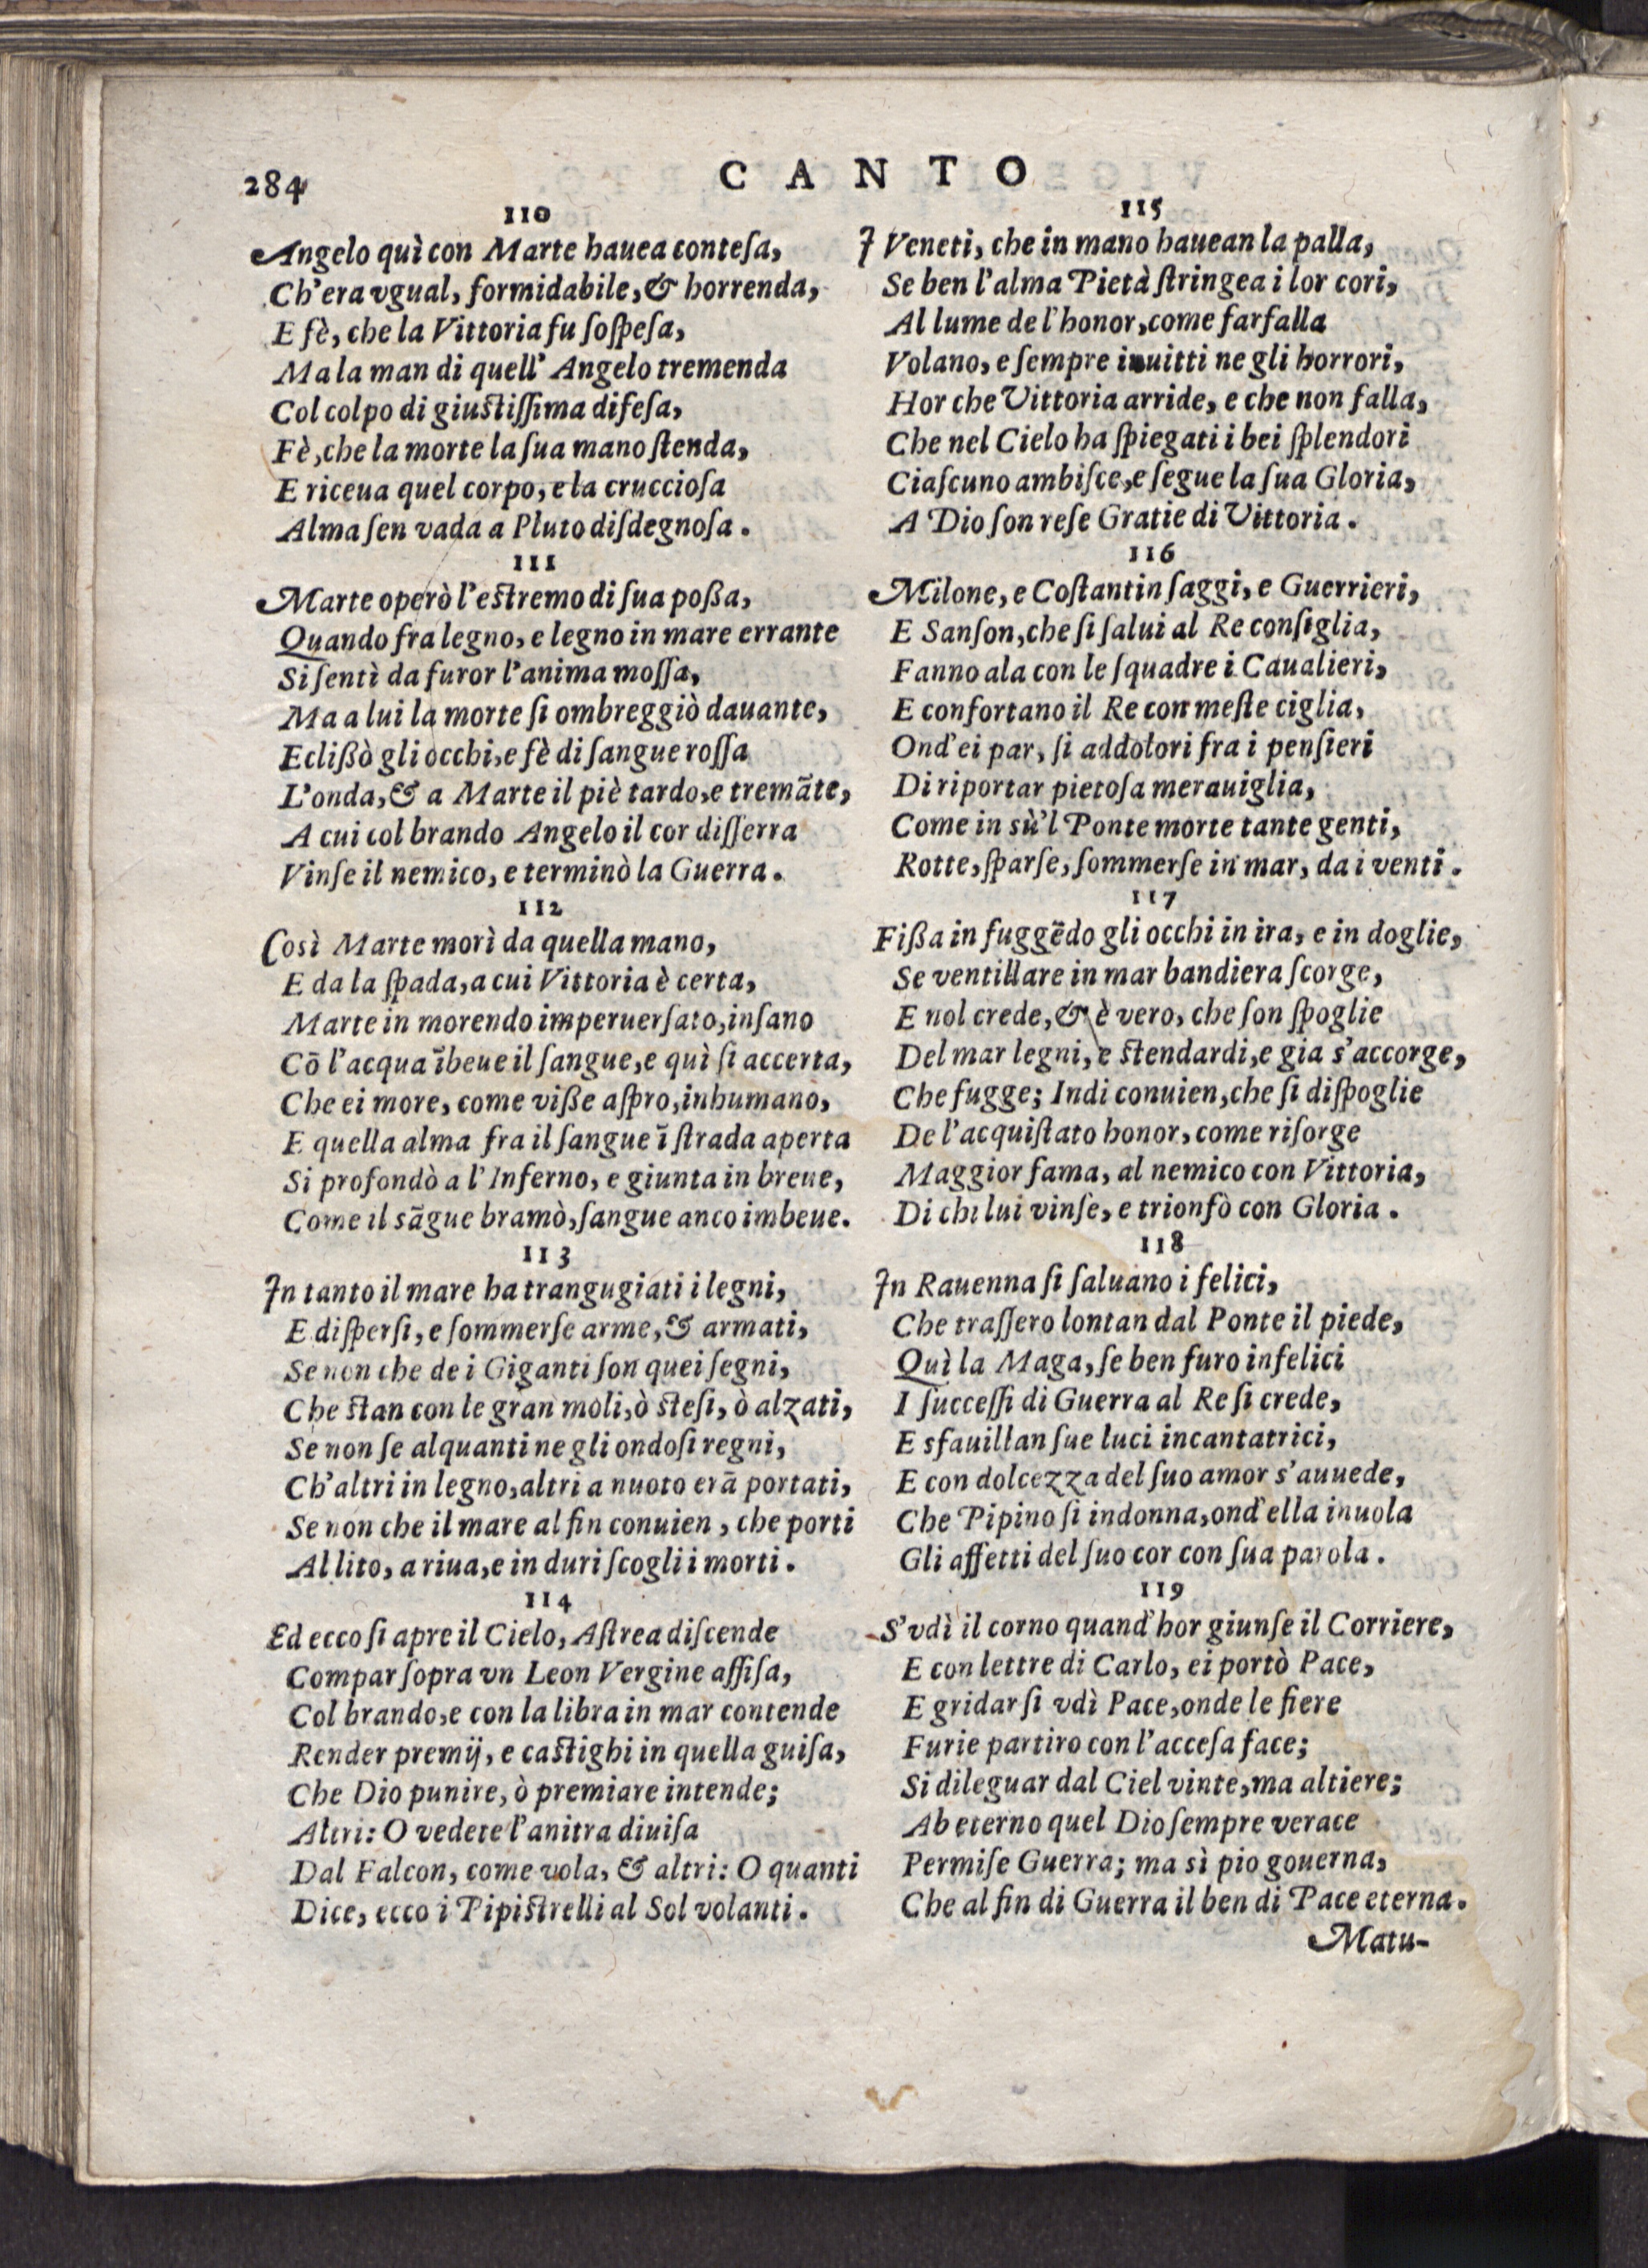 284
CANTO
110
Angelo quì con Marte hauea conteſa,
Ch'era vgual, formidabile, & horrenda,
E fè, che la Vittoria fu ſoſpeſa,
Ma la man di quell' Angelo tremenda
Col colpo di giuſtiſſima difeſa,
Fè, che la morte la ſua mano ſtenda,
E riceua quel corpo, e la cruccioſa
Alma ſen vada a Pluto diſdegnoſa.
111
Marte operò l'eſtremo di ſua poßa,
Quando fra legno, e legno in mare errante
Si ſentì da furor l'anima moſſa,
Ma a lui la morte ſi ombreggiò dauante,
Eclißò gli occhi, e fè di ſangue roſſa
L'onda, & a Marte il piè tardo, e tremãte,
A cui col brando Angelo il cor diſſerra
Vinſe il nemico, e terminò la Guerra.
112
Così Marte morì da quella mano,
E da la ſpada, a cui Vittoria è certa,
Marte in morendo imperuerſato, inſano
Cō l'acqua ībeue il ſangue, e quì ſi accerta,
Che ei more, come viße aſpro, inhumano,
E quella alma fra il ſangue ī ſtrada aperta
Si profondò a l'Inferno, e giunta in breue,
Come il sãgue bramò, ſangue anco imbeue.
113
In tanto il mare ha trangugiati i legni,
E diſperſi, e ſommerſe arme, & armati,
Se non che de i Giganti ſon quei ſegni,
Che ſtan con le gran moli, ò ſteſi, ò alzati,
Se non ſe alquanti ne gli ondoſi regni,
Ch'altri in legno, altri a nuoto erā portati,
Se non che il mare al fin conuien, che porti
Al lito, a riua, e in duri ſcogli i morti.
114
Ed ecco ſi apre il Cielo, Aſtrea diſcende
Compar ſopra vn Leon Vergine aſſiſa,
Col brando, e con la libra in mar contende
Render premij, e caſtighi in quella guiſa,
Che Dio punire, ò premiare intende;
Altri: O vedete l'anitra diuiſa
Dal Falcon, come vola, & altri: O quanti
Dice, ecco i Pipiſtrelli al Sol volanti.
115
I Veneti, che in mano hauean la palla,
Se ben l'alma Pietà ſtringea i lor cori,
Al lume de l'honor, come farfalla
Volano, e ſempre inuitti ne gli horrori,
Hor che Vittoria arride, e che non falla,
Che nel Cielo ha ſpiegati i bei ſplendori
Ciaſcuno ambiſce, e ſegue la ſua Gloria,
A Dio ſon reſe Gratie di Vittoria.
116
Milone, e Coſtantin ſaggi, e Guerrieri,
E Sanſon, che ſi ſalui al Re conſiglia,
Fanno ala con le ſquadre i Caualieri,
E confortano il Re con meſte ciglia,
Ond'ei par, ſi addolori fra i penſieri
Di riportar pietoſa merauiglia,
Come in sù'l Ponte morte tante genti,
Rotte, ſparſe, ſommerſe in mar, da i venti.
117
Fißa in fuggēdo gli occhi in ira, e in doglie,
Se ventillare in mar bandiera ſcorge,
E nol crede, & è vero, che ſon ſpoglie
Del mar legni, e ſtendardi, e gia s'accorge,
Che fugge; Indi conuien, che ſi diſpoglie
De l'acquiſtato honor, come riſorge
Maggior fama, al nemico con Vittoria,
Di chi lui vinſe, e trionfò con Gloria.
118
In Rauenna ſi ſaluano i felici,
Che traſſero lontan dal Ponte il piede,
Quì la Maga, ſe ben furo infelici
I ſucceſſi di Guerra al Re ſi crede,
E sfauillan ſue luci incantatrici,
E con dolcezza del ſuo amor s'auuede,
Che Pipino ſi indonna, ond'ella inuola
Gli affetti del ſuo cor con ſua parola.
119
S'vdì il corno quand'hor giunſe il Corriere,
E con lettre di Carlo, ei portò Pace,
E gridar ſi vdì Pace, onde le fiere
Furie partiro con l'acceſa face;
Si dileguar dal Ciel vinte, ma altiere;
Ab eterno quel Dio ſempre verace
Permiſe Guerra; ma sì pio gouerna,
Che al fin di Guerra il ben di Pace eterna.
Matu-